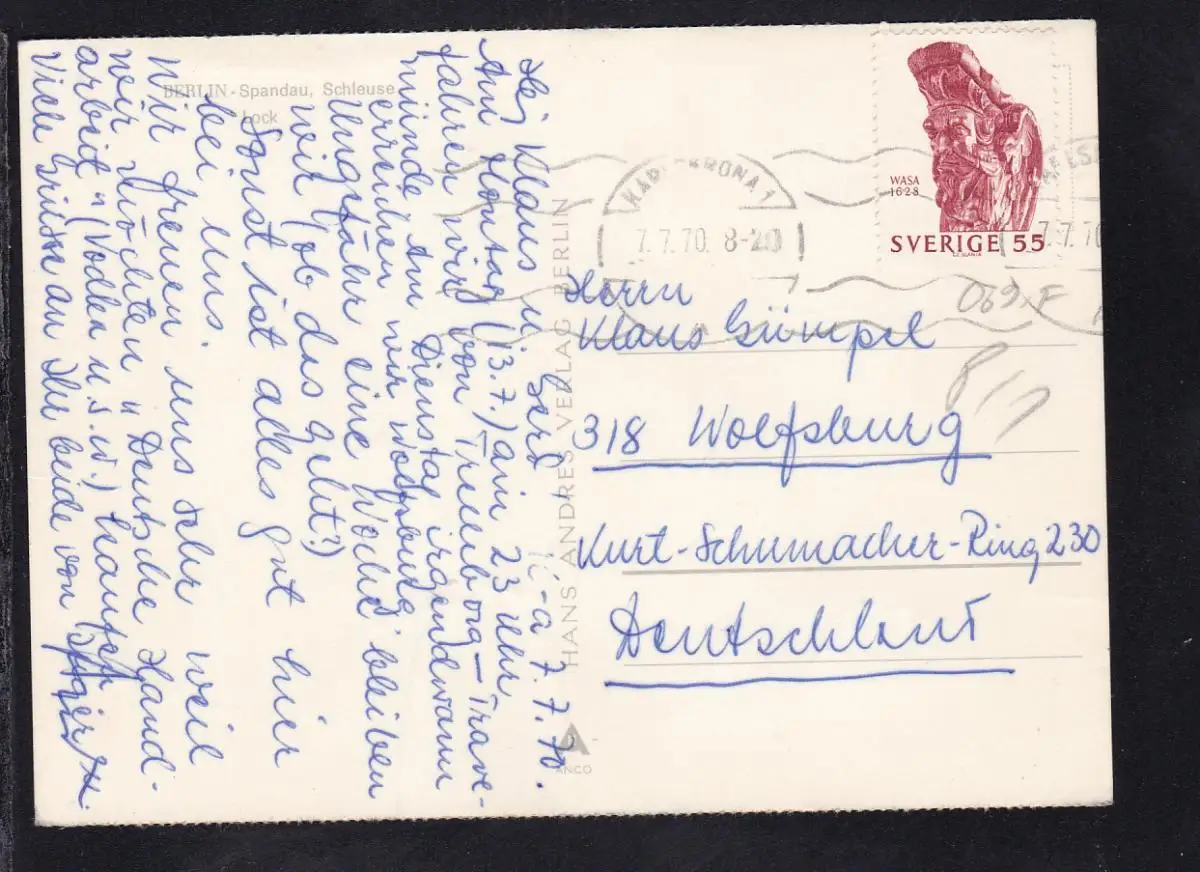 BERLIN - Spandau, Schleuse
Lock
Hej Klaus u Gerd,
K-a 7.7.70.
Am Montag (13.7.) um 23 Uhr,
fahren wir von Trelleborg - Trave-
münde. Am Dienstag irgendwann
erreichen wir Wolfsburg.
Ungefähr eine Woche bleiben
wir (ob das geht?)
Sonst ist alles gut hier
bei uns.
Wir freuen uns sehr weil
wir möchten "Deutsche Hand-
arbeit" (Vodka u.s.w.) kaufen
Viele Grüße an Ihr beide von
HANS ANDRES VERLAG BERLIN
ANCO
KARLSKRONA 1
7.7.70. 8-20
7.7.70
WASA
1628
SVERIGE 55
CZ. SLANIA
069. F
Herrn
Klaus Gümpel
318 Wolfsburg
Kurt-Schumacher-Ring 230
Deutschland